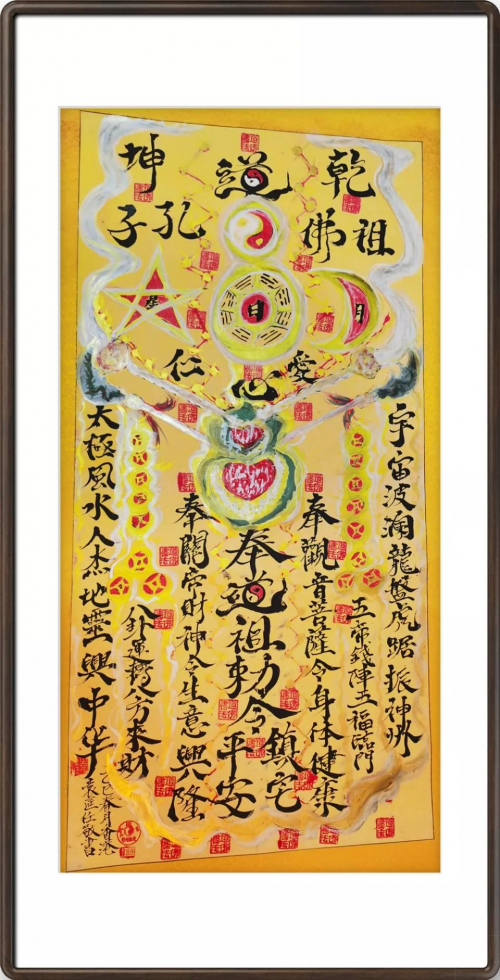 乾道坤
佛祖
孔子
月日星
愛心仁
宇宙波瀾龍盤虎踞振神州
五帝錢陣五福臨門
奉觀音菩薩令身体健康
奉道祖勅令鎮宅平安
奉關帝財神令生意興隆
八卦運轉八方來財
太極風水人杰地靈興中华
乙巳春月香港
敬書